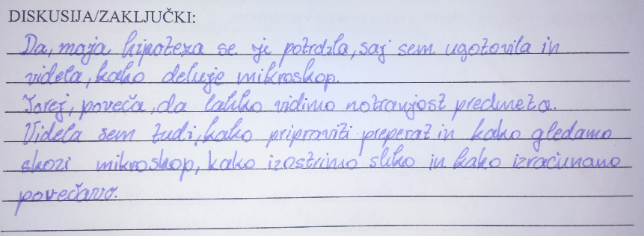 DISKUSIJA/ZAKLJUČKI:
Da, moja hipoteza se je potrdila, saj sem ugotovila in
videla, kako deluje mikroskop.
Torej, poveča, da lahko vidimo notranjost predmeta.
Videla sem tudi, kako pripraviti preperat in kako gledamo
skozi mikroskop, kako izostrimo sliko in kako izračunamo
povečavo.